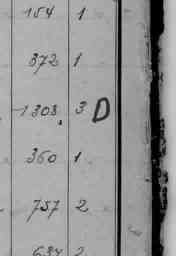 154 1
872 1
1308. 3 D
360 1
757 2
634 2